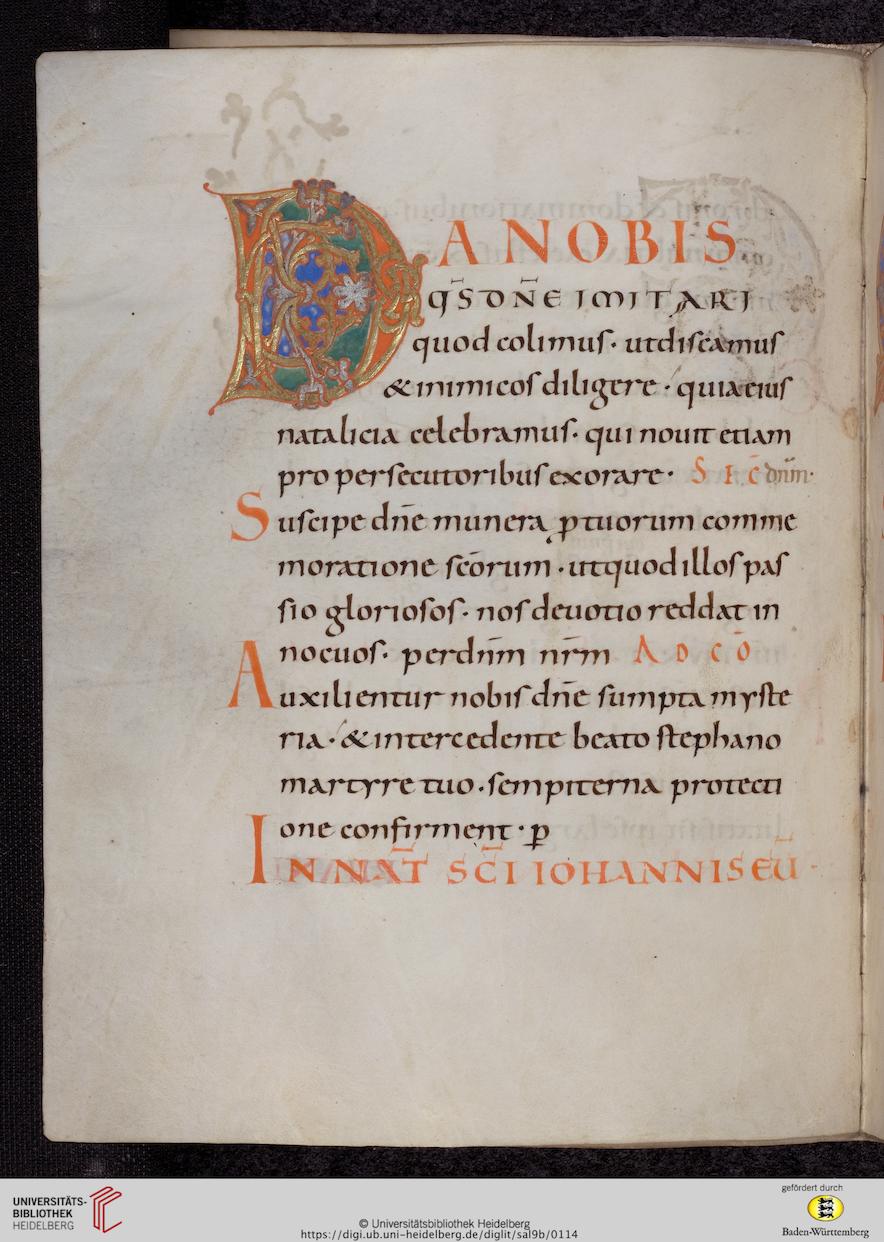 DA NOBIS
q̄s DÑE IMITARI
quod colimus· ut discamus
& inimicos diligere· quia eius
natalicia celebramus· qui nouit etiam
pro persecutoribus exorare· SI C̄ dn̄m·
Suscipe dn̄e munera ꝓ tuorum comme
moratione sc̄orum· ut quod illos pas
sio gloriosos· nos deuotio reddat in
nocuos· per dn̄m nr̄m AD CŌ
Auxilientur nobis dn̄e sumpta myste
ria· & intercedente beato stephano
martyre tuo· sempiterna protecti
one confirment· p̱
IN NAT̄ SC̄I IOHANNIS EŪ·
UNIVERSITÄTS-
BIBLIOTHEK
HEIDELBERG
© Universitätsbibliothek Heidelberg
https://digi.ub.uni-heidelberg.de/diglit/sal9b/0114
gefördert durch
Baden-Württemberg